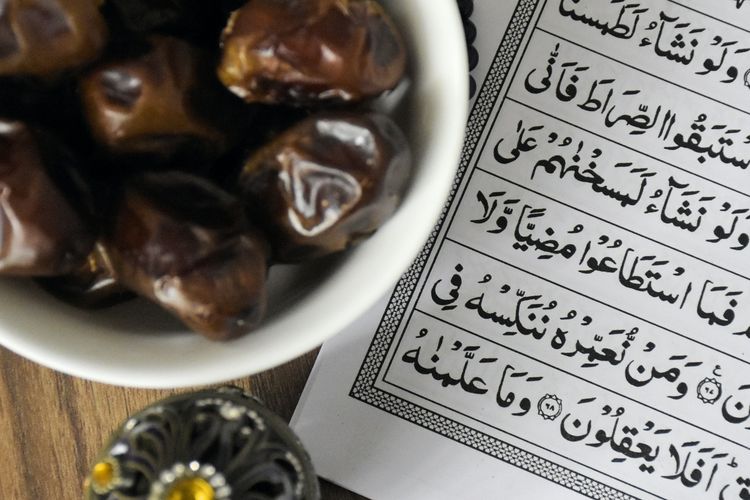 وَلَوْ نَشَآءُ لَطَمَسْنَا
سْتَبَقُوا الصِّرَاطَ فَاَنّٰى
وَلَوْ نَشَآءُ لَمَسَخْنٰهُمْ عَلٰى
فَمَا اسْتَطَاعُوْا مُضِيًّا وَّلَا
نَ ٦٧ وَمَنْ نُّعَمِّرْهُ نُنَكِّسْهُ فِي
اَفَلَا يَعْقِلُوْنَ ٦٨ وَمَا عَلَّمْنٰهُ